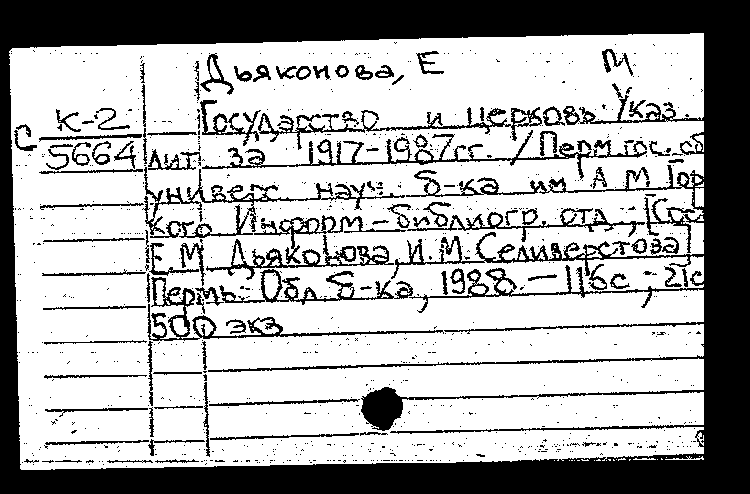 Дьяконова, Е М
К-2 Государство и церковь: Указ.
С 5664 лит. за 1917-1987гг. / Перм. гос. об
универс. науч. б-ка им А М Гор
кого Информ-библиогр. отд, ; [Сост
Е.М Дьяконова, И.М. Селиверстова]
Пермь: Обл б-ка, 1988. — 116с ; 21с
500 экз